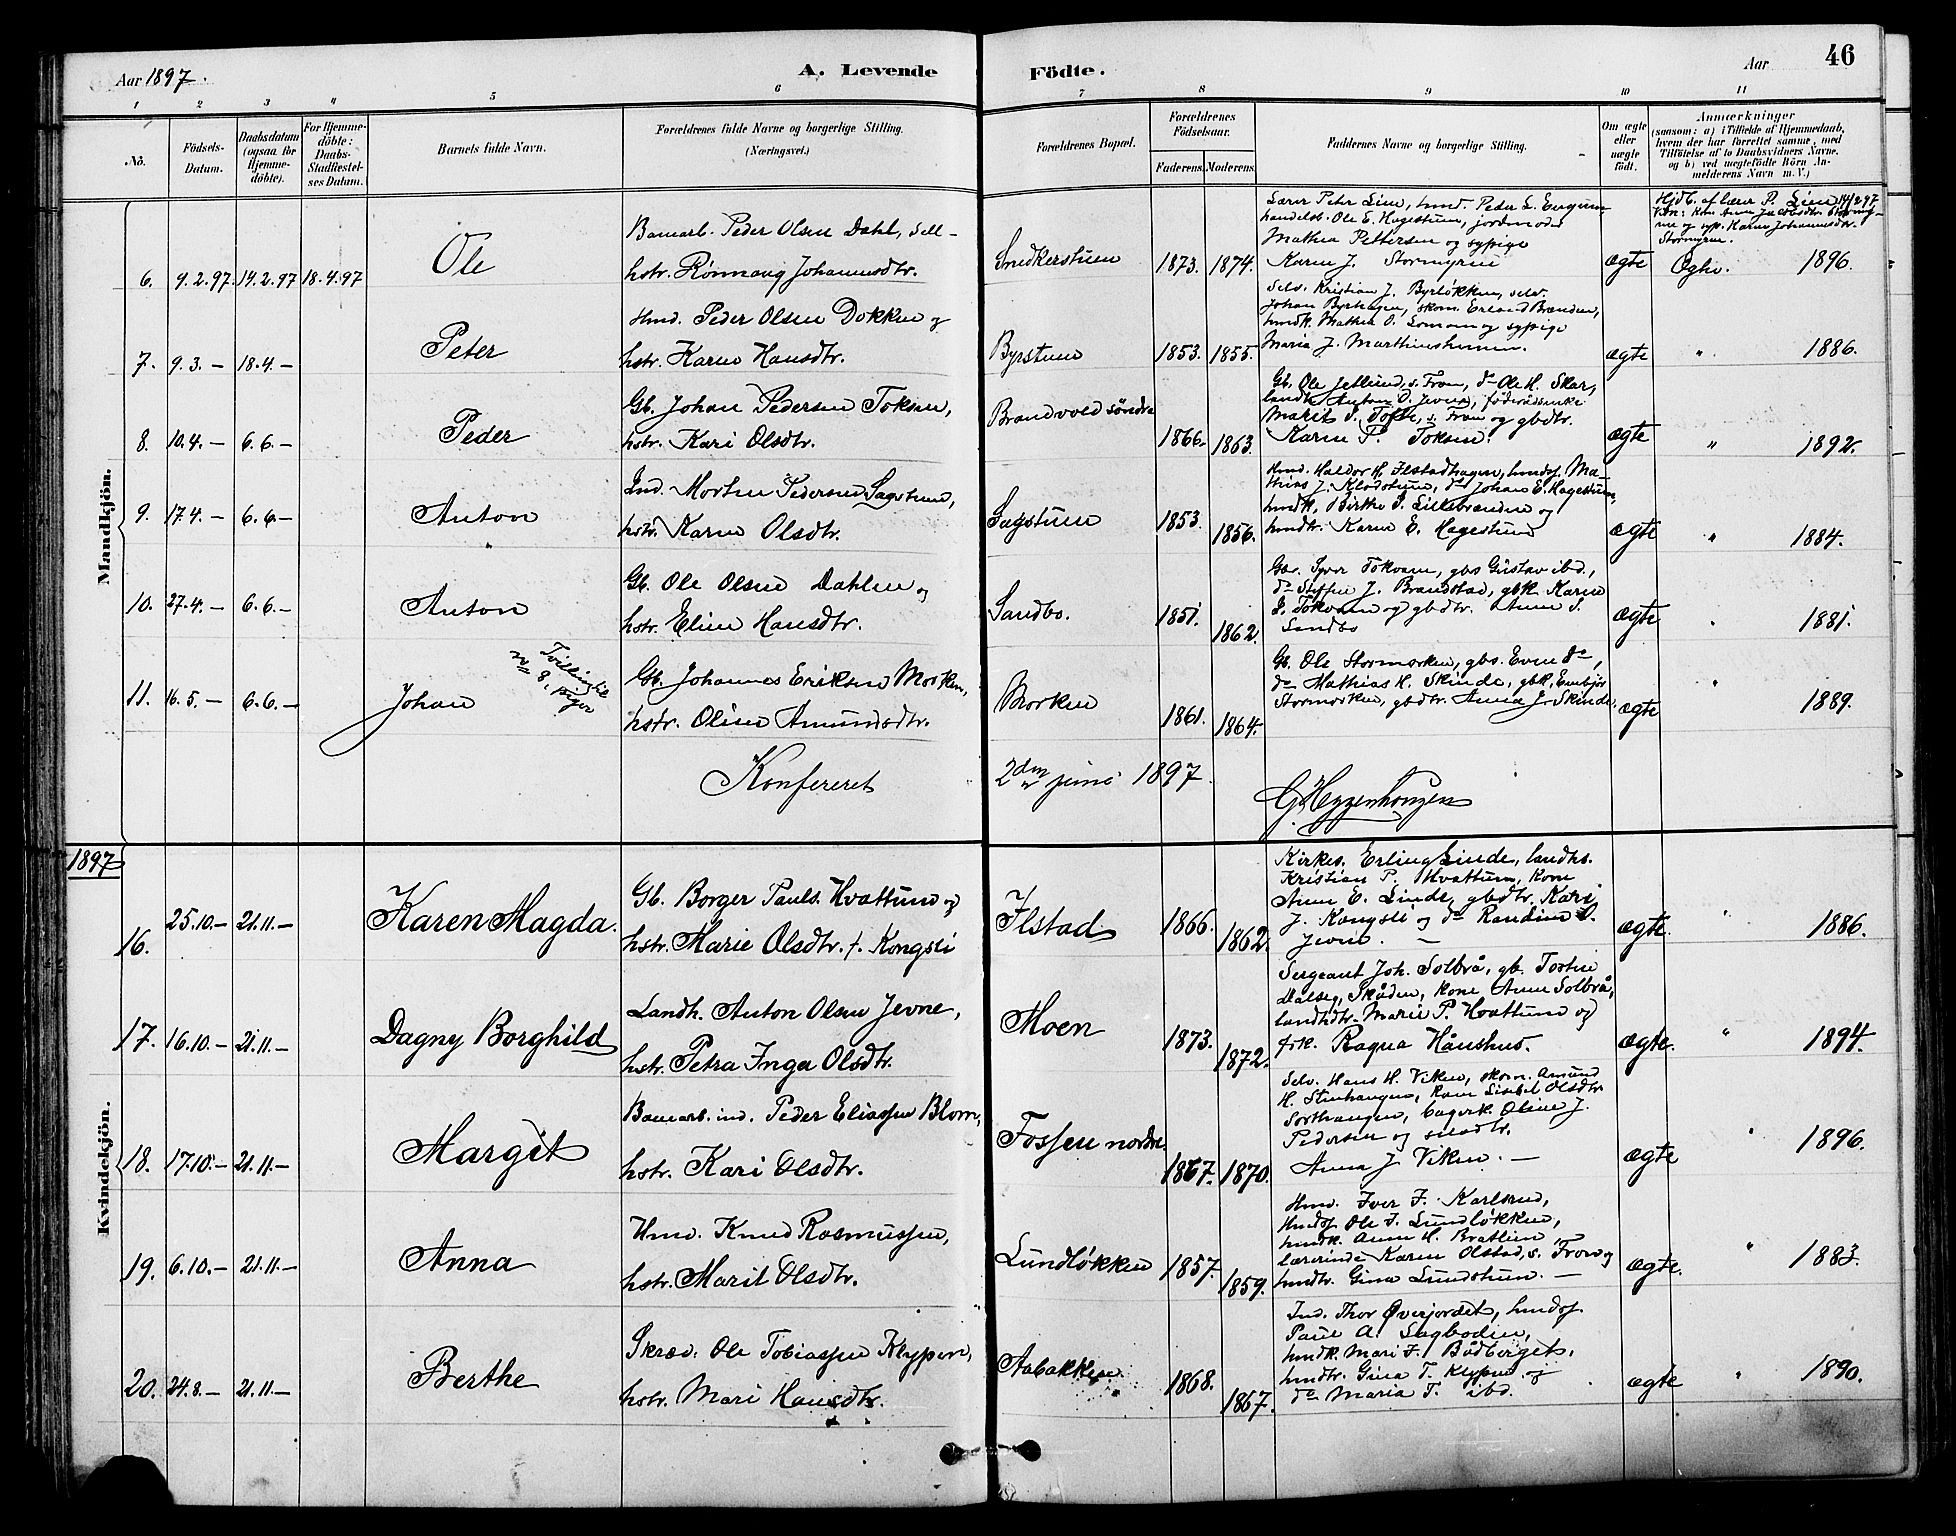 Aar 1897.
A. Levende Födte.
Aar
46
1 2 3 4 5 6 7 8 9 10 11
No.
Födsels-Datum.
Daabsdatum (ogsaa for Hjemme-döbte).
For Hjemme-döbte: Daabs-Stadfæstel-ses Datum.
Barnets fulde Navn.
Forældrenes fulde Navne og borgerlige Stilling. (Næringsvei.)
Forældrenes Bopæl.
Forældrenes Födselsaar.
Faderens. Moderens.
Faddernes Navne og borgerlige Stilling.
Om ægte eller uægte födt.
Anmærkninger
(saasom: a) i Tilfælde af Hjemmedaab, hvem der har forrettet samme, med Tilföielse af to Daabsvidners Navne. og b) ved uægtefödte Börn An-melderens Navn m. V.)
Mandkjön.
6. 9.2.97. 14.2.97 18.4.97
Ole
Banearb. Peder Olsen Dahl, sell-
hstr. Rønnaug Johannesdtr.
Smedkerstuen
1873. 1874.
Lærer Peter Lien, hmd. Peder L.
handelsb. Ole E. Hagestuen, jordmoder
Mathea Pettersen og sypige
Karen J. Stormyren
ægte
Hjdb. af lærer P. Lien 14/2 97
Stormyren.
Ægtv. 1896.
7. 9.3. — 18.4. —
Peter
Hmd. Peder Olsen Dokken og
hstr. Karen Hansdtr.
Byrstuen
1853. 1855.
Selv. Kristian J. Byrløkken, selv.
Johan Byrhagen, skom. Erland Brænden,
hmdk. Mathea O. Loman og sypige
Maria J. Marthinshumen.
ægte
" 1886.
8. 10.4. — 6.6. —
Peder
Gb. Johan Pedersen Toksen,
hstr. Kari Olsdtr.
Brandvold søndre
1866. 1863.
Gb. Ole Jetlund, s. Fron, do Ole H. Skar,
landh. Anton O. Jevne, føderådsenke
Marit S. Tofte, s. Fron og gbdtr.
Karen P. Toksen.
ægte
" 1892.
9. 17.4. — 6.6. —
Anton
Ind. Morten Pedersen Sagstuen,
hstr. Karen Olsdtr.
Sagstuen
1853. 1856.
Hmd. Haldor H. Ilstadhagen, hmdsf. Ma-
thias J. Klodstuen, do Johan E. Hagestuen,
hmdk. Birthe P. Lillebrænden og
hmdtr. Karen E. Hagestuen
ægte
" 1884.
10. 27.4. — 6.6. —
Anton
Gb. Ole Olsen Dahlen og
hstr. Eline Hansdtr.
Sandbo.
1851. 1862.
Gbr. Syver Tokvam, gbs Gustav ibd.,
do Steffen J. Brandstad, gbk. Karen
S. Tokvam og gbdtr. Anne S.
Sandbo
ægte
" 1881.
11. 16.5. — 6.6. —
Johan
Tvilling til
no 8, piger
Gb. Johannes Eriksen Morken,
hstr. Oline Amundsdtr.
Morken
1861. 1864.
Gb. Ole Stormorken, gbs. Even do,
do Mathias H. Skinde, gbk. Embjør
Stormorken, gbdtr. Anna J. Skinde.
ægte
" 1889.
Konfereret 2den juni 1897.
G. Heyzenhougen
1897
Kvindekjön.
16. 25.10. — 21.11. —
Karen Magda.
Gb. Borger Pauls. Hvattum og
hstr. Marie Olsdtr. f. Kongsli
Ilstad
1866. 1862.
Kirkes. Erling Linde, landhs.
Kristian P. Hvattum, kone
Anne E. Linde, gbdtr. Kari
J. Kongsli og do Randine O.
Jevne. —
ægte.
" 1886.
17. 16.10. — 21.11. —
Dagny Borghild
Landh. Anton Olsen Jevne,
hstr. Petra Inga Olsdtr.
Moen
1873. 1872.
Sergeant Joh. Solbrå, gb. Tosten
Dalseg, Skåden, kone Anne Solbrå,
landhdtr. Marie P. Hvattum og
frk. Ragna Hånshus.
ægte.
" 1894.
18. 17.10. — 21.11. —
Margit
Banearb. ind. Peder Eliassen Blom,
hstr. Kari Olsdtr.
Fossen nordre
1867. 1870.
Selv. Hans H. Viken, skom. Amund
H. Stenhaugen, kone Sisbel Olsdtr.
Sorthaugen, bagerk. Oline J.
Pedersen og selvdtr.
Anna J. Viken. —
ægte
" 1896.
19. 6.10. — 21.11. —
Anna
Hmd. Knud Rasmussen,
hstr. Marit Olsdtr.
Lundløkken
1857. 1859.
Hmd. Iver F. Karlsrud,
hmdsf. Ole J. Lundløkken,
hmdk. Anne H. Bratlien,
lærerinde Karen Olstad, s. Fron og
hmdtr. Gina Lundstuen. —
ægte.
" 1883.
20. 24.8. — 21.11. —
Berthe
Skræd. Ole Tobiassen Klypen,
hstr. Mari Hansdtr.
Aabakken
1868. 1867.
Ind. Thor Øverjordet, hmdsf.
Paul A. Sagboden,
hmdk. Mari F. Bådberget,
hmdtr. Gina T. Klypen og
do Maria T. ibd.
ægte
" 1890.